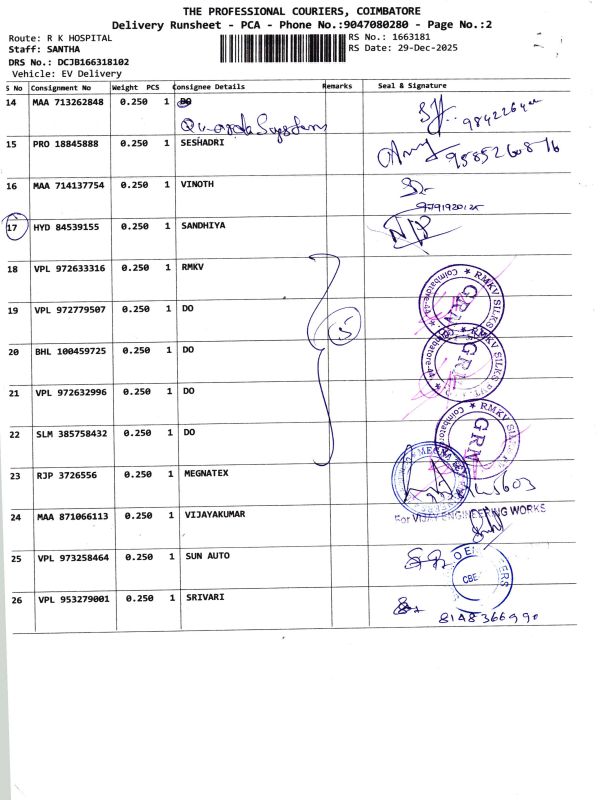 THE PROFESSIONAL COURIERS, COIMBATORE
Delivery Runsheet - PCA - Phone No.:9047080280 - Page No.:2
Route: R K HOSPITAL
RS No.: 1663181
Staff: SANTHA
RS Date: 29-Dec-2025
DRS No.: DCJB166318102
Vehicle: EV Delivery
S No Consignment No Weight PCS Consignee Details Remarks Seal & Signature
14 MAA 713262848 0.250 1 DO
15 PRO 18845888 0.250 1 SESHADRI 9585260876
16 MAA 714137754 0.250 1 VINOTH
17 HYD 84539155 0.250 1 SANDHIYA
18 VPL 972633316 0.250 1 RMKV
19 VPL 972779507 0.250 1 DO 5
20 BHL 100459725 0.250 1 DO
21 VPL 972632996 0.250 1 DO
22 SLM 385758432 0.250 1 DO
RMKV SILKS Coimbatore-44 GRN
RMKV SILKS PVT. Coimbatore-44 GRN
RMKV SILKS Coimbatore GRN
23 RJP 3726556 0.250 1 MEGNATEX
24 MAA 871066113 0.250 1 VIJAYAKUMAR
For VIJAY ENGINEERING WORKS
25 VPL 973258464 0.250 1 SUN AUTO
CBE
26 VPL 953279001 0.250 1 SRIVARI
8148366990